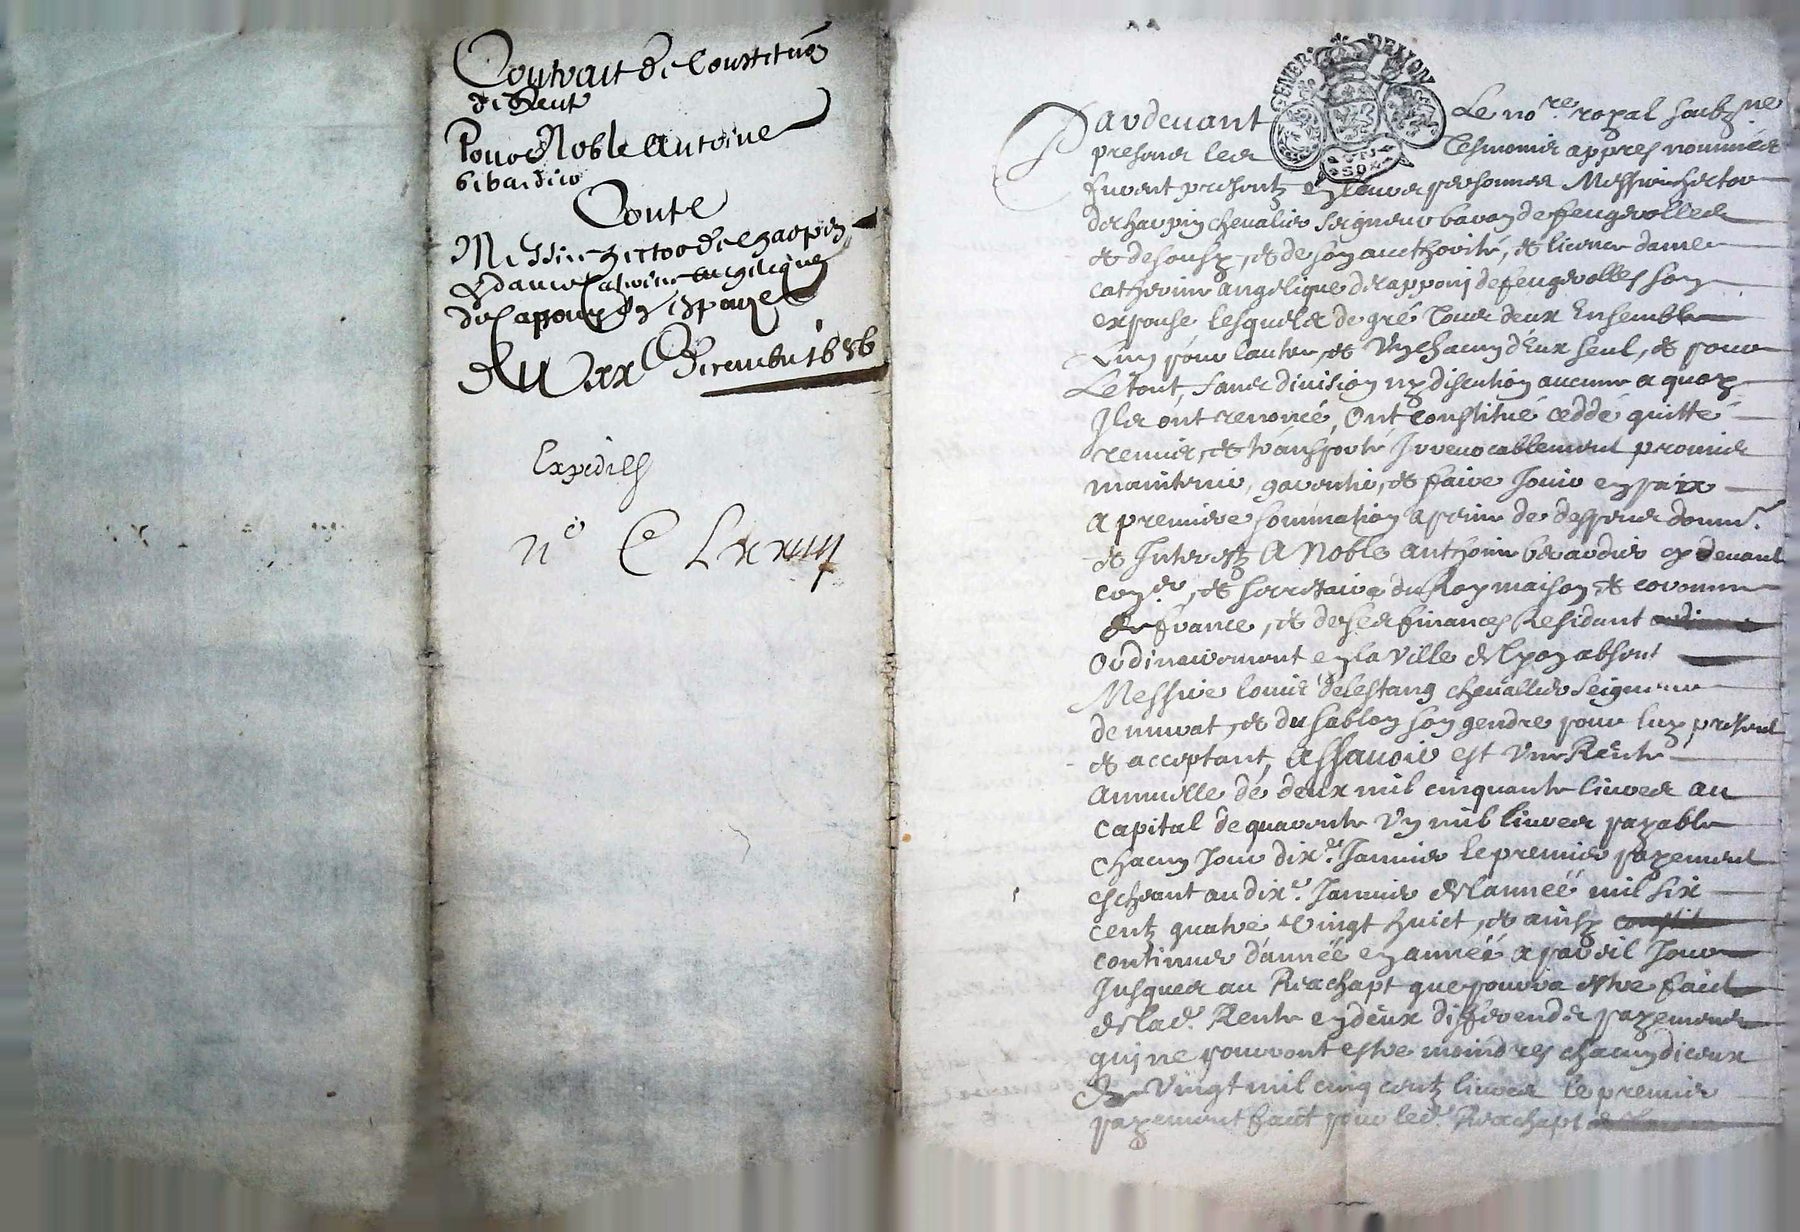 Contract de Constitu͠on
de Rente
Pour Noble Antoine
beraudier
Conte
Messire hector de charpin
& dame Catherine angelique
de Capponi son espouse
du xx Decembre 1686
Expediés
n° C Lxxiiij
GENER. DE LYON
SIX
SOL
Pardevant Le no.re royal soubz.ne
presens les Tesmoins appres nommés
furent presentz en leurs personnes Messire hector
de charpin chevalier seigneur baron de feugerolles
& de sousy, & de son aucthorité, & licence dame
catherine angelique de capponj de feugerolles son
espouse lesquels de gré tous deux Ensemble
L'un pour l'autre, & Un chacun d'Eux seul, & pour
Le tout, sans division ny discution aucune a quoy
Ils ont renoncé, Ont constitué ceddé quitté
remis, & transporté Irrevocablement promis
maintenir, garentir, & faire Jouir en paix
a premiere sommation a peine de despens domm.s
& Interestz A Noble anthoine beraudier cy devant
con.er, & secretaire du Roy maison & couronne
de france, & de ses finances Residant
Ordinairement en la Ville de Lyon absent
Messire louis de lestang chevallier Seigneur
de murat, & du sablon son gendre pour luy present
& acceptant, assavoir est Une Rente
Annuelle de deux mil cinquante livres au
capital de quarente Un mil livres payable
chacun Jour dix.e Janvier le premier payement
escheant au dix.e Janvier de l'année mil six
centz quatre vingt huict, & ainsy
continuer d'année en année a pareil Jour
Jusques au Reachapt que pourra estre faict
de lad. Rente en deux differends payemens
qui ne pourront estre moindres chacun d'iceux
de Vingt mil cinq centz livres le premier
payement faict pour led. Reachapt